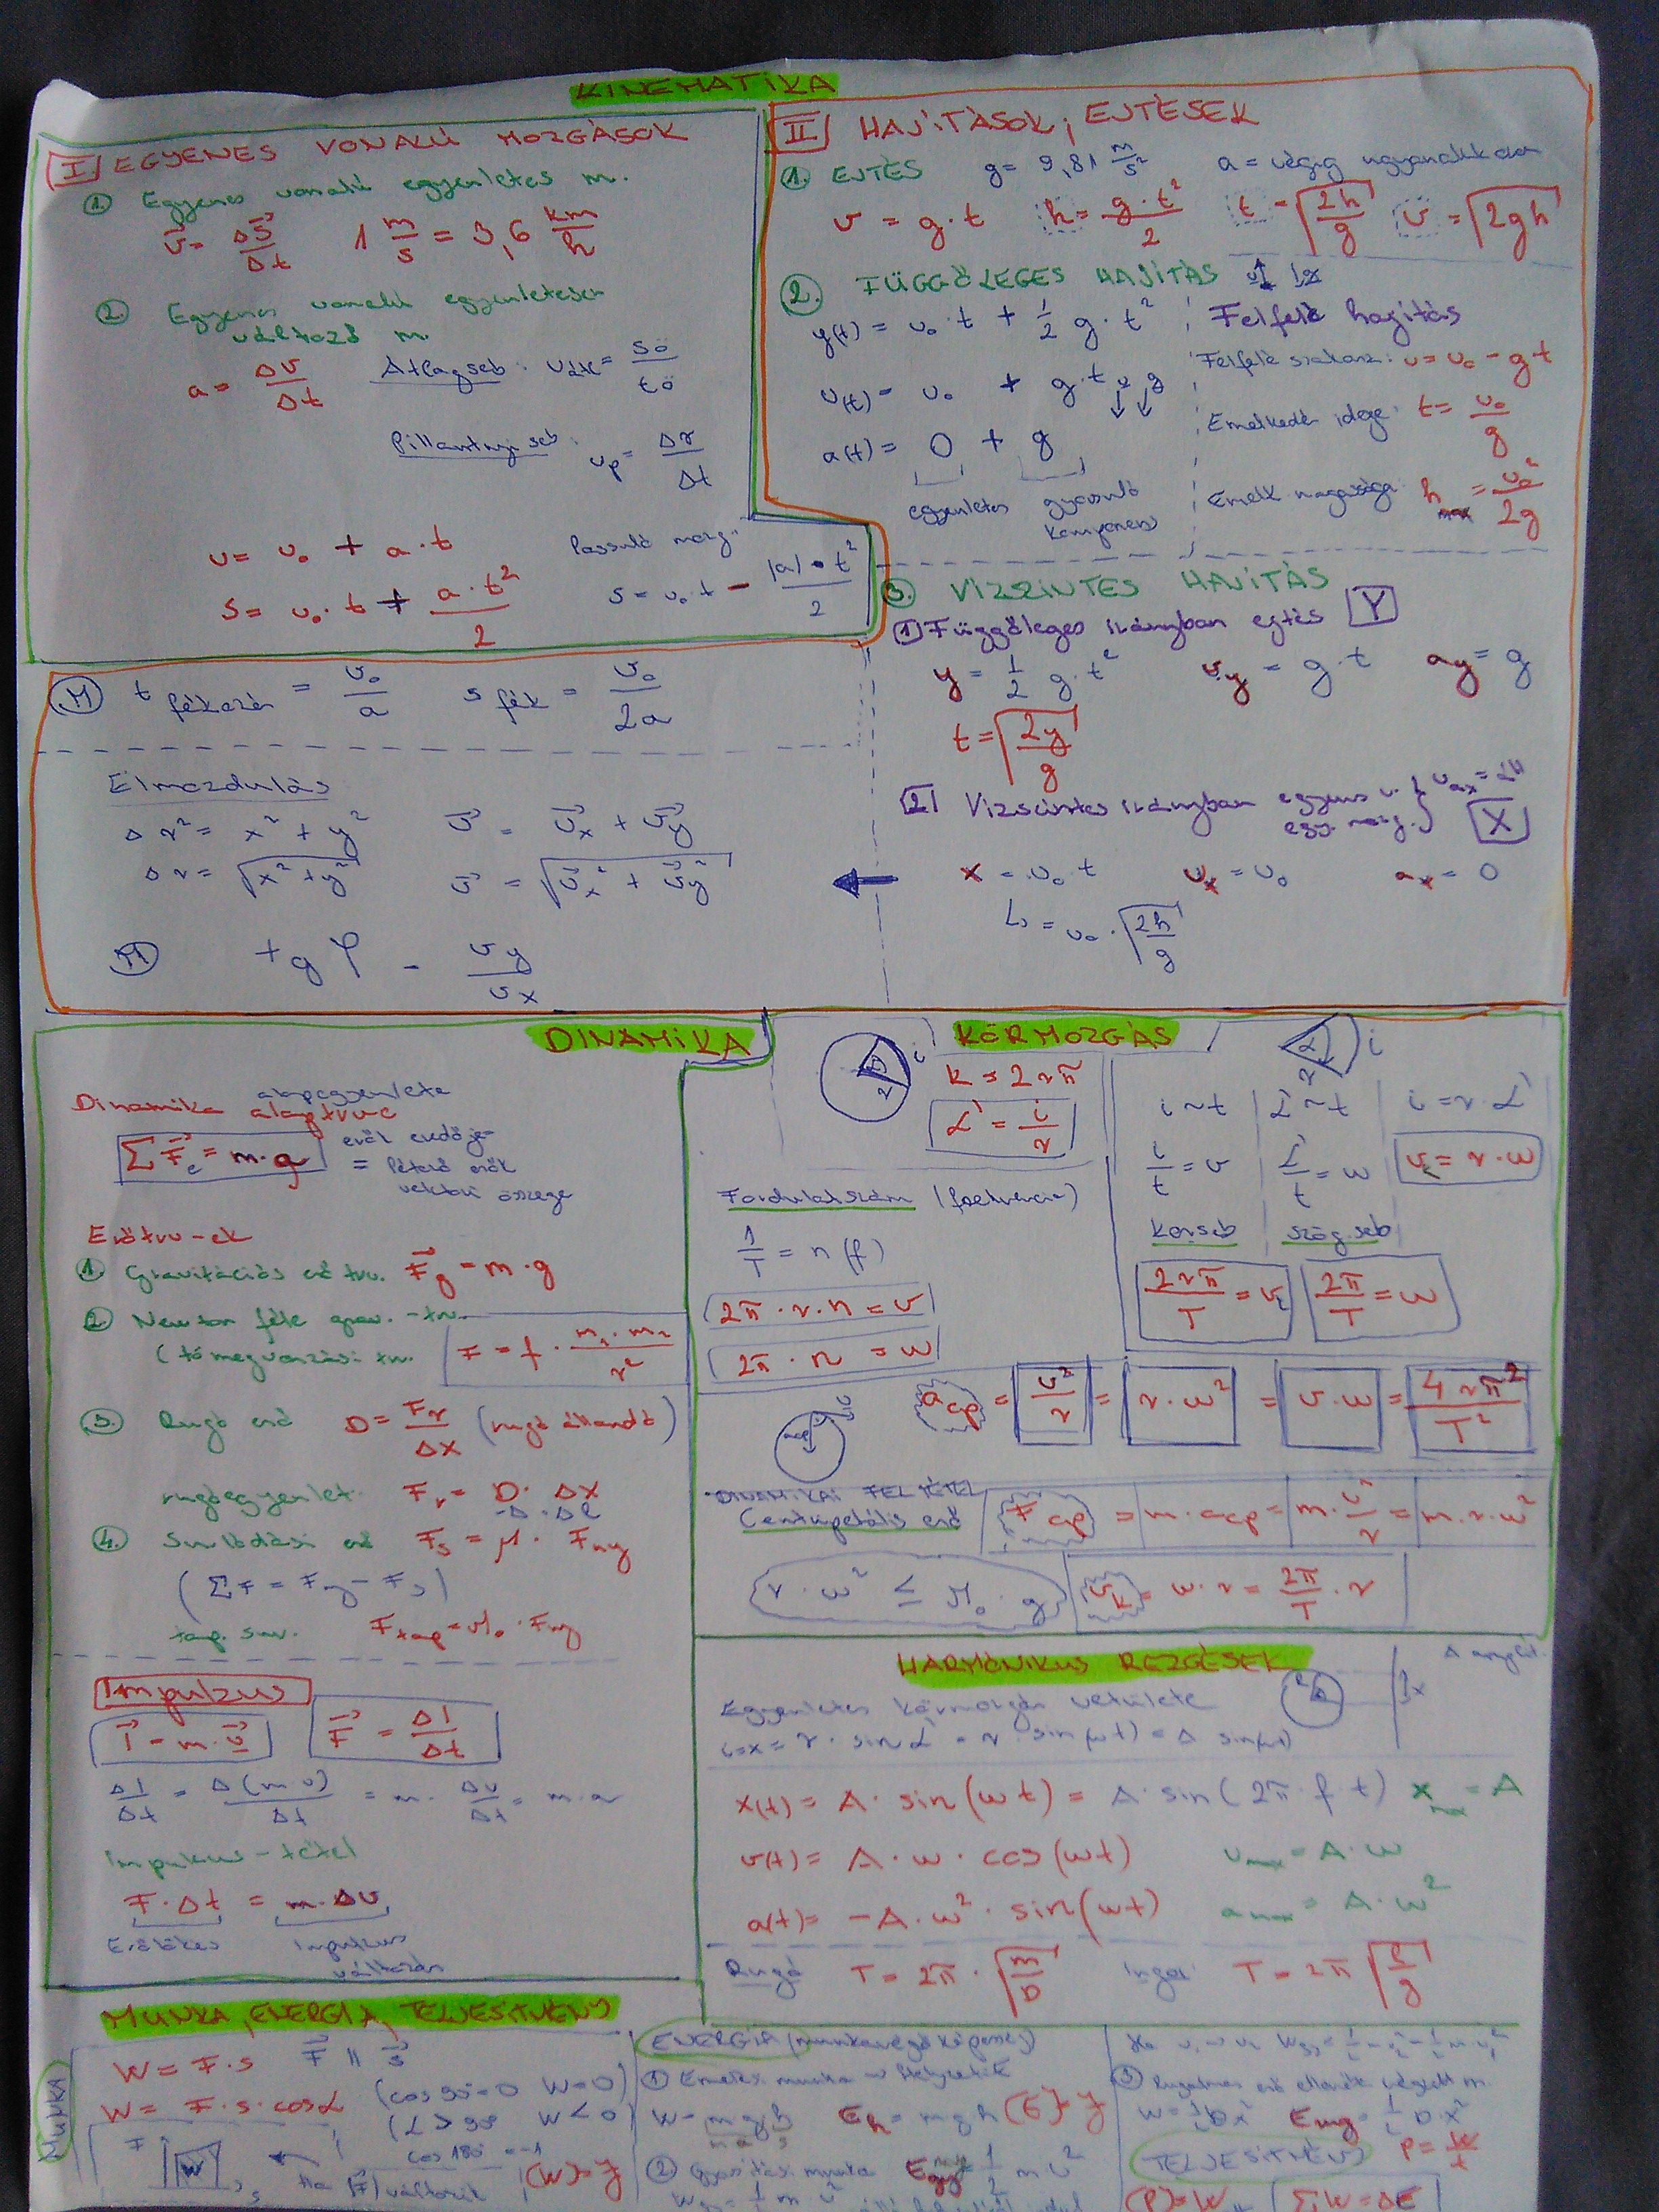 KINEMATIKA
I EGYENES VONALÚ MOZGÁSOK
1. Egyenes vonalú egyenletes m.
v = Δs/Δt   1 m/s = 3,6 km/h
2. Egyenes vonalú egyenletesen
változó m.
a = Δv/Δt   Átlagseb: vátl = sö/tö
Pillantnyi seb: vp = Δr/Δt
v = v₀ + a·t   lassuló mozg:
s = v₀·t + a·t²/2   s = v₀·t - |a|·t²/2
M t fékezés = v₀/a   s fék = v₀/2a
Elmozdulás
Δr² = x² + y²   v = vx + vy
Δr = √(x² + y²)   v = √(vx² + vy²)
M tg φ = vy/vx
II HAJÍTÁSOK, EJTÉSEK
1. EJTÉS   g = 9,81 m/s²   a = végig ugyanakkora
v = g·t   h = g·t²/2   t = √(2h/g)   v = √(2gh)
2. FÜGGŐLEGES HAJÍTÁS
y(t) = v₀·t + 1/2 g·t²
v(t) = v₀ + g·t
a(t) = 0 + g
egyenletes gyorsuló
komponens
Felfelé hajítás
Felfelé szakasz: v = v₀ - gt
Emelkedés ideje: t = v₀/g
Emelk magassága: h max = v₀²/2g
3. VÍZSZINTES HAJÍTÁS
1 Függőleges irányban ejtés Y
y = 1/2 g·t²   vy = g·t   ay = g
t = √(2y/g)
2 Vízszintes irányban egyenes v.
egy. mozg. X
x = v₀·t   vx = v₀   ax = 0
L = v₀·√(2h/g)
DINAMIKA
alapegyenlete
Dinamika alaptrve
ΣFe = m·a   erők eredője
= ható erők
vektori összege
Erőtrv-ek
1. Gravitációs erő trv. Fg = m·g
2. Newton féle grav.-trv.
(tömegvonzási trv.   F = f·m₁·m₂/r²
3. Rugó erő   D = Fr/Δx (rugó állandó)
rugóegyenlet   Fr = D·Δx
-D·Δl
4. Súrlódási erő   Fs = μ·Fny
tap. súr.   Ftap = μ₀·Fny
Impulzus
I = m·v   F = ΔI/Δt
ΔI/Δt = Δ(mv)/Δt = m·Δv/Δt = m·a
Impulzus-tétel
F·Δt = m·Δv
Erőlökés   Impulzus
változás
KÖRMOZGÁS
α i r
K = 2rπ
α = i/r
i~t   α~t   i = r·α
i/t = v   α/t = ω   vk = r·ω
Kerseb   szögseb
2rπ/T = vk   2π/T = ω
Fordulatszám (frekvencia)
1/T = n (f)
2π·r·n = v
2π·n = ω
acp = v²/r = r·ω² = v·ω = 4rπ²/T²
DINAMIKAI FELTÉTEL
Centripetális erő   Fcp = m·acp = m·v²/r = m·r·ω²
r·ω² ≤ μ₀·g   vk = ω·r = 2π/T·r
HARMÓNIKUS REZGÉSEK
Egyenletes körmozgás vetülete
x = r·sin α = r·sin(ωt) = A sin(ωt)
x(t) = A·sin(ωt) = A·sin(2π·f·t)   x max = A
v(t) = A·ω·cos(ωt)   vmax = A·ω
a(t) = -A·ω²·sin(ωt)   amax = A·ω²
Rugó   T = 2π·√(m/D)   Inga:   T = 2π √(l/g)
MUNKA, ENERGIA, TELJESÍTMÉNY
MUNKA
W = F·s   F || s
W = F·s·cosα   (cos 90 = 0   W = 0)
(α > 90   W < 0)
cos 180 = -1
Ha |F| változik   (W) = J
ENERGIA (munkavégző képesség)
1 Emelési munka → Helyzeti E
W = mgh   Eh = mgh (E) = J
2 Gyorsítási munka   Emozg = 1/2 m v²
3 Rugalmas erő ellenében végzett m.
W = 1/2 D x²   Erug = 1/2 D·x²
TELJESÍTMÉNY   P = W/t
(P) = W   ΣW = ΔE